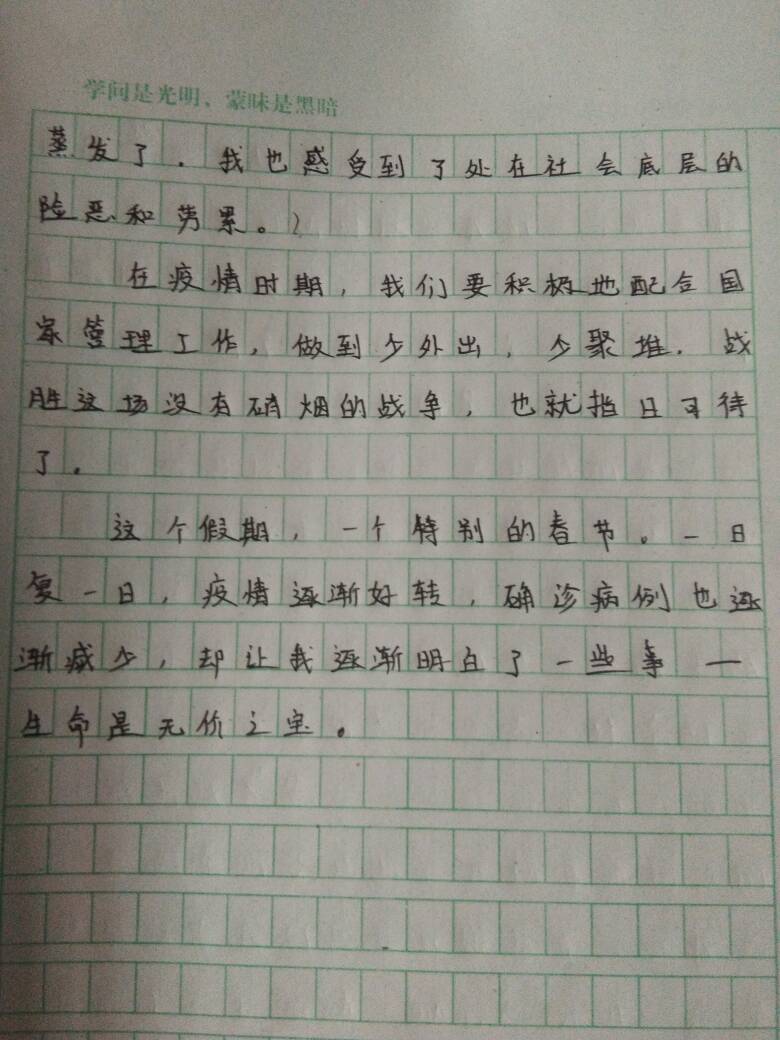 学问是光明、蒙昧是黑暗
蒸发了．我也感受到了处在社会底层的
险恶和劳累。）
在疫情时期，我们要积极地配合国
家管理工作，做到少外出，少聚堆．战
胜这场没有硝烟的战争，也就指日可待
了．
这个假期，一个特别的春节。一日
复一日，疫情逐渐好转，确诊病例也逐
渐减少，却让我逐渐明白了一些事一
生命是无价之宝。